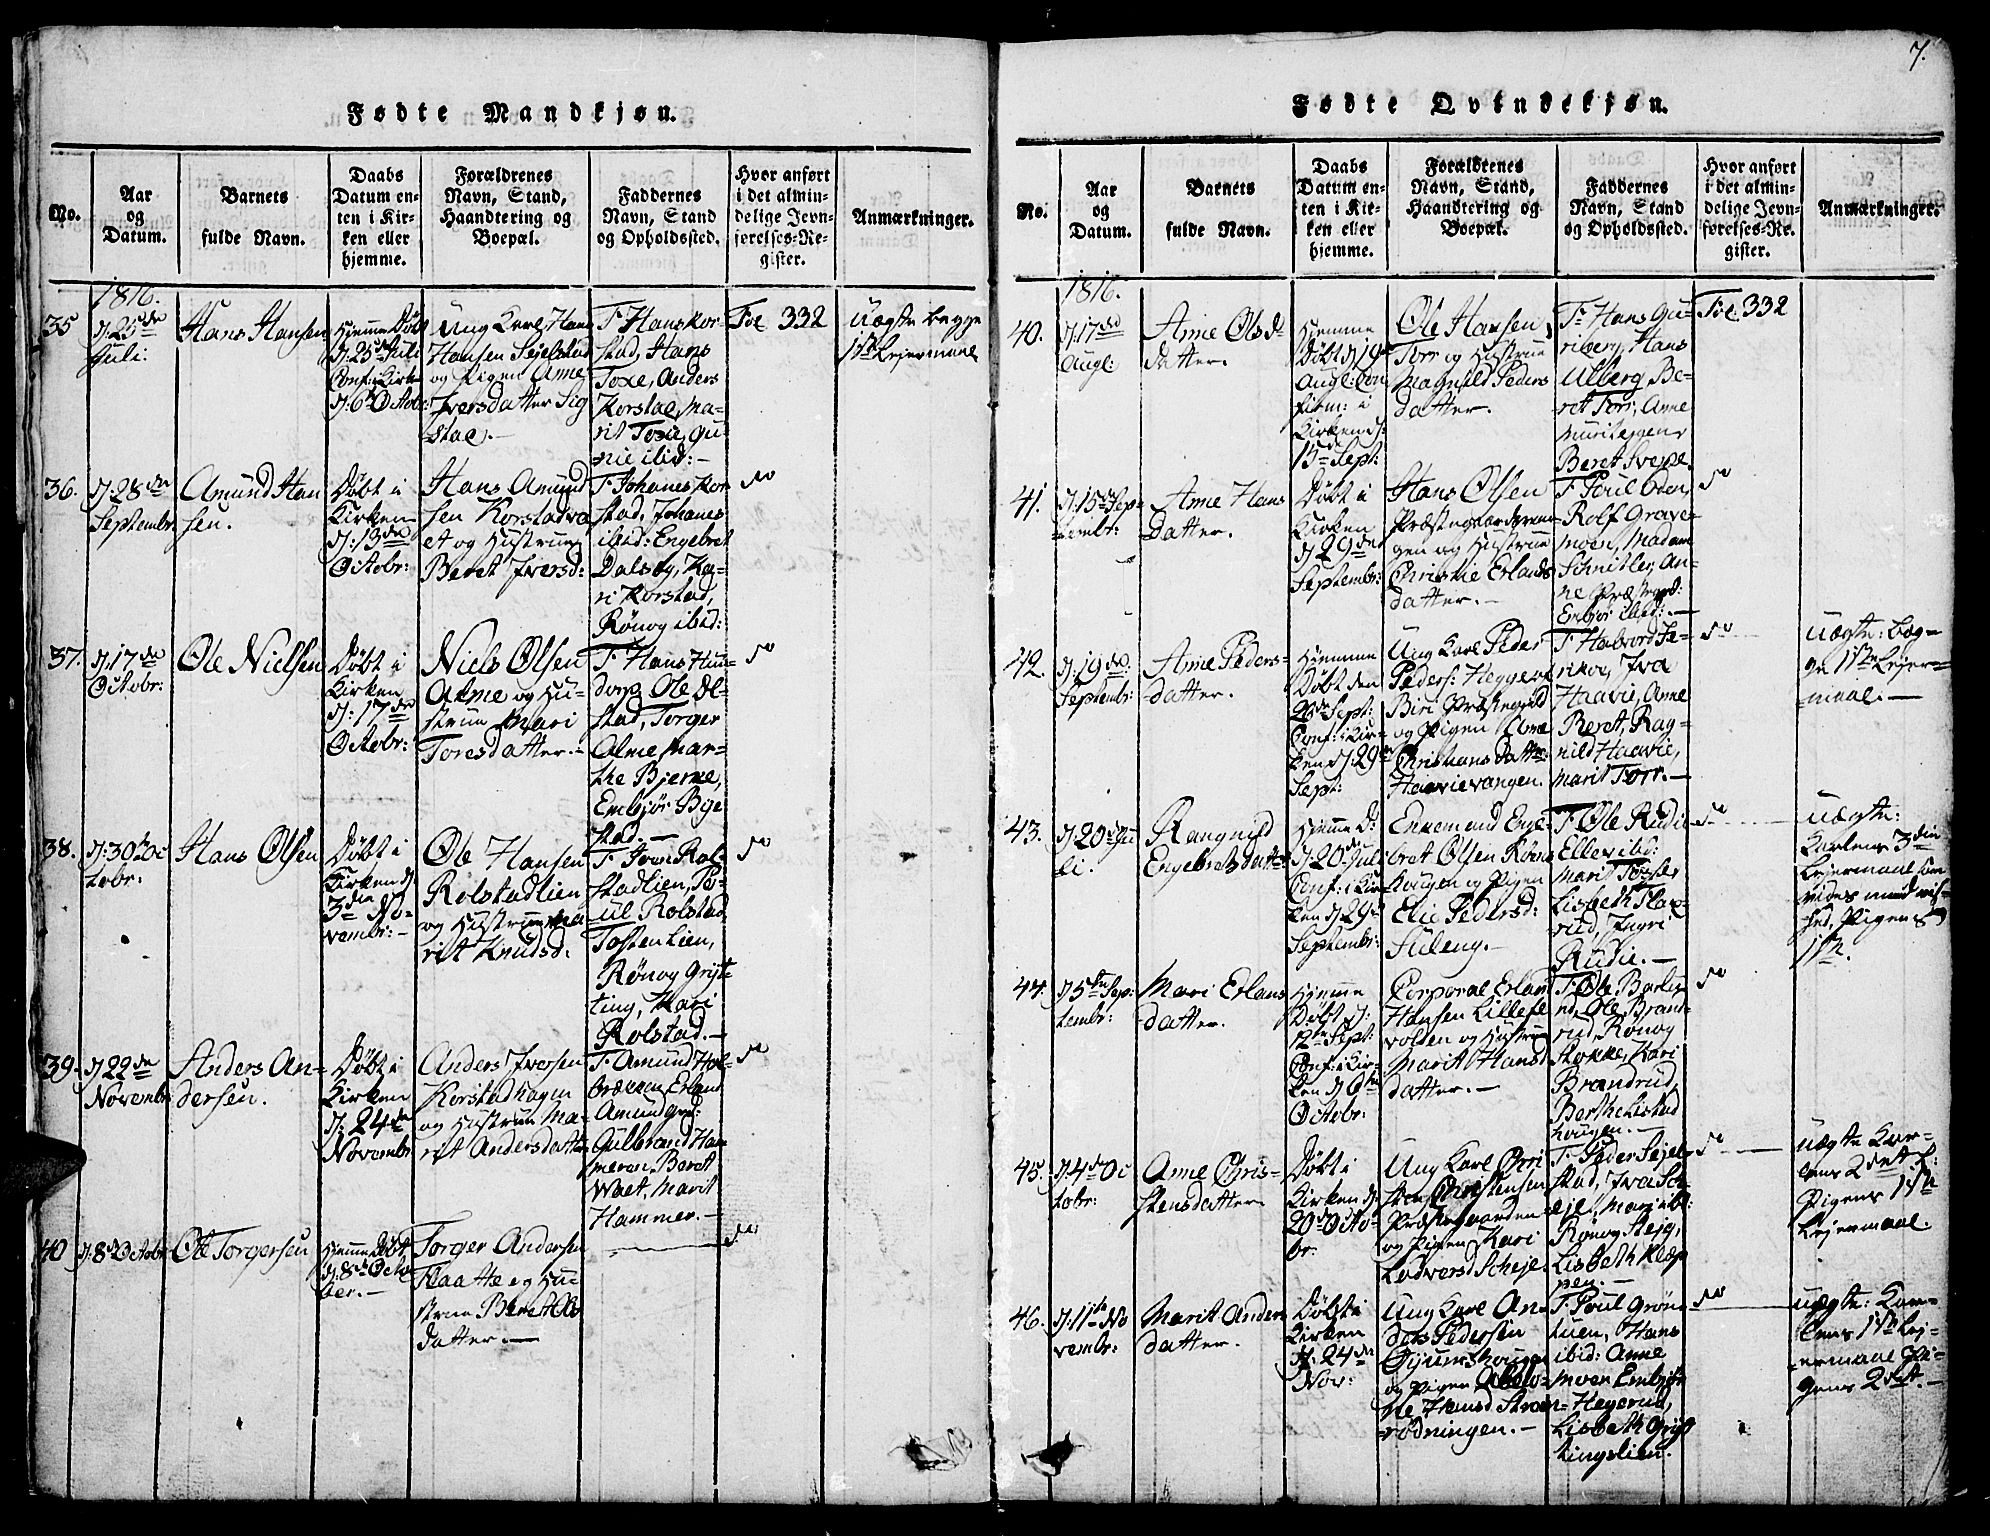 7.
Fødte Mandkjøn.
No.
Aar
og
Datum.
Barnets
fulde Navn.
Daabs
Datum en-
ten i Kir-
ken eller
hjemme.
Forældrenes
Navn, Stand,
Haandtering og
Boepæl.
Faddernes
Navn, Stand
og Opholdssted.
Hvor anført
i det almin-
delige Jevn-
førelses-Re-
gister.
Anmærkninger.
1816.
35
d: 25de
Juli:
Hans Hansen
Hjemme Døbt
d: 25de Juli
Conf: i Kirk
d: 6te Octobr:
Ung Karl Hans
Hansen Sejelstad
og Pigen Anne
Iversdatter Sig
stad.-
T. Hans Kor-
stad, Hans
Toxe, Anders
Korstad, Ma-
rit Toxe, Gu-
nie ibid:-
Fol 332
Uægte begge
1ste Lejermaal
36.
d: 28de
Septembr.
Amund Han
sen.
Døbt i
Kirken
d: 13de
Octobr:
Hans Amund
sen Korstadva
et og Hustrue
Beret Iversd:
T. Johanes Kor
stad, Johanes
ibid: Engebret
Dalsby, Ka-
ri Korstad,
Rønog ibid:
do
37.
d: 17de
Octobr:
Ole Nielsen
Døbt i
Kirken
d: 17de
Octobr:
Niels Olsen
Alme og Hu-
strue Mari
Toresdatter.-
T. Hans Hun-
dorp, Ole Ol-
stad, Torger
Alme, Mar-
the Bjerke,
Embjør Bye
stad.-
do
38.
d: 30te Oc
tobr:
Hans Olsen
Døbt i
Kirken d
3die No-
vembr:-
Ole Hansen
Rolstadlien
og Hustrue Ma
rit Knudsd:
T. Iver Rol-
stadlien, Po-
ul Rolstad
Tosten Lien,
Rønog Gryt-
ting, Kari
Rolstad.-
do
39.
d 22de
Novembr
Anders An-
dersen.
Døbt i
Kirken
d: 24de
Novembr
Anders Iversen
Korstadhagen
og Hustrue Ma-
rit Andersdatter
T. Amund Hol-
bræcken, Erland
Amundgrd:
Gulbrand Ham
meren, Beret
Waet, Marit
Hammer.-
do
40
d: 8de Octobr
Ole Torgersen
Hjemme Døbt
d: 8de Octo
ber.-
Torger Andersen
Flaatte og Hu-
strue Beret Ols
datter.-
do
Fødte Qvindekjøn.
No.
Aar
og
Datum.
Barnets
fulde Navn.
Daabs
Datum en-
ten i Kir-
ken eller
hjemme.
Forældrenes
Navn, Stand,
Haandtering og
Boepæl.
Faddernes
Navn, Stand
og Opholdssted.
Hvor anført
i det almin-
delige Jevn-
førelses-Re-
gister.
Anmærkninger.
1816.
40.
d: 17de
Augl:
Anne Ols-
datter.
Hjemme
Døbt d 19de
Augl: Con
firm: i
Kirken d:
15de Sept:
Ole Hansen
Torr og Hustrue
Magnild Peders
datter.
T. Hans Gu-
riberg, Hans
Ulberg, Be-
ret Torr, Anne
Beret Svepe.
Fol. 332
41.
d: 15de Sep-
tembr:
Anne Hans
datter.
Døbt i
Kirken
d 29de
Septembr:
Hans Olsen
Præstegaardsvan
gen og Hustrue
Christie Erlands
datter.-
T. Poul Oden,
Rolf Grave-
moen, Madam
Schnitler, An-
ne Præstegrd:
Embjør ibid:-
do
42.
d: 19de
Septembr:
Anne Peders-
datter.
Hjemme
Døbt den
Sept:
Conf: i Kir-
ken d: 29de
Sept:
Ung Karl Peder
Peders:
Biri Præstegield
og Pigen Anne
Christiansdatter
Haavievangen.
T. Halvord
Iva
Haavie, Anne
Beret, Rag-
nild Haavie,
Marit Torr.-
do
Uægte: beg-
ge 1ste Lejer-
maal.-
43.
d: 20de Ju
li.
Rangnild
Engebretsdatter
Hjemme D:
d: 20de Juli
Conf: i Kir
ken d 29de
Septembr:
Enkemand Enge-
bret Olsen Rønne
hougen og Pigen
Elie Pedersd:
Fuleng.-
T. Ole Rudie
Ellev ibid:
Marit
Lisbeth Flax-
rud, Ingri
Rudie.-
do
Uægte:
Karlens 3die
Lejermaal som
vides med vis-
hed, Pigens
1ste.
44.
d 5te Sep:
tembr:
Mari Erlans
datter.
Hjemme
Døbt d:
12te Sept:
Conf: i Kir-
ken d 6te
Octobr:
Corporal Erland
Hansen Lillefæl
volden og Hustrue
Marit Hansd
datter.-
T. Ole Barlin
d, Ole Brand-
rud, Rønog
Stokke, Kari
Brandrud,
Berthe Listad
hougen.-
do
45.
d: 4de Oc
tobr:
Anne Chris-
tensdatter.
Døbt i
Kirken d:
20de Octo-
br:
Ung Karl Chri
sten Christensen
Præstegaarden
og Pigen Kari
Lodversd Scheje
T. Peder Sejel-
stad, Iva Sch-
eje, Mari ibid:
Rønog Steig,
Lisbeth Klep
pen.-
do
Uægte Kar-
lens 2det L:
Pigens 1ste
Lejermaal.
46.
d: 11te No
vembr:
Marit Anders
datter.
Døbt i
Kirken
d: 24de
Nov:
Ung Karl An-
ders Pedersen
og Pigen
ne Hansd Strøm-
rødningen.-
T. Poul Grøn
tuen, Hans
ibid: Anne
Moen, Embjør
Hegerud,
Lisbeth Gryt
tingslien.
do
Uægte: Kar-
lens 1ste Lej-
ermaal Pi-
gens 2det.-